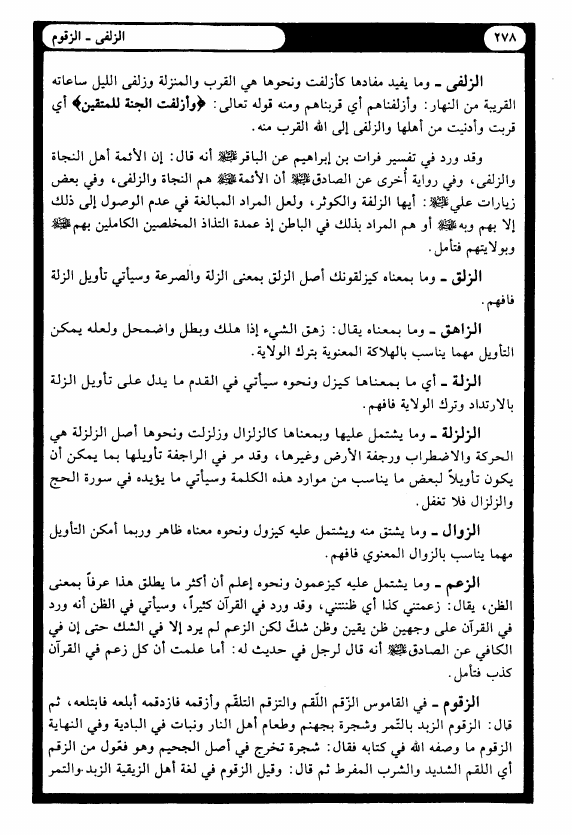 ٢٧٨
الزلفى ــ الزقوم
الزلفى ــ وما يفيد مفادها كأزلفت ونحوها هي القرب والمنزلة وزلفى الليل ساعاته
القريبة من النهار: وأزلفناهم أي قربناهم ومنه قوله تعالى: ﴿وأزلفت الجنة للمتقين﴾ أي
قربت وأدنيت من أهلها والزلفى إلى الله القرب منه.
وقد ورد في تفسير فرات بن إبراهيم عن الباقر عليه السلام أنه قال: إن الأئمة أهل النجاة
والزلفى، وفي رواية أُخرى عن الصادق عليه السلام أن الأئمة عليهم السلام هم النجاة والزلفى، وفي بعض
زيارات علي عليه السلام: أيها الزلفة والكوثر، ولعل المراد المبالغة في عدم الوصول إلى ذلك
إلا بهم وبه عليه السلام أو هم المراد بذلك في الباطن إذ عمدة التذاذ المخلصين الكاملين بهم عليهم السلام
وبولايتهم فتأمل.
الزلق ــ وما بمعناه كيزلقونك أصل الزلق بمعنى الزلة والصرعة وسيأتي تأويل الزلة
فافهم.
الزاهق ــ وما بمعناه يقال: زهق الشيء إذا هلك وبطل واضمحل ولعله يمكن
التأويل مهما يناسب بالهلاكة المعنوية بترك الولاية.
الزلة ــ أي ما بمعناها كيزل ونحوه سيأتي في القدم ما يدل على تأويل الزلة
بالارتداد وترك الولاية فافهم.
الزلزلة ــ وما يشتمل عليها وبمعناها كالزلزال وزلزلت ونحوها أصل الزلزلة هي
الحركة والاضطراب ورجفة الأرض وغيرها، وقد مر في الراجفة تأويلها بما يمكن أن
يكون تأويلاً لبعض ما يناسب من موارد هذه الكلمة وسيأتي ما يؤيده في سورة الحج
والزلزال فلا تغفل.
الزوال ــ وما يشتق منه ويشتمل عليه كيزول ونحوه معناه ظاهر وربما أمكن التأويل
مهما يناسب بالزوال المعنوي فافهم.
الزعم ــ وما يشتمل عليه كيزعمون ونحوه إعلم أن أكثر ما يطلق هذا عرفاً بمعنى
الظن، يقال: زعمتني كذا أي ظننتني، وقد ورد في القرآن كثيراً، وسيأتي في الظن أنه ورد
في القرآن على وجهين ظن يقين وظن شكّ لكن الزعم لم يرد إلا في الشك حتى إن في
الكافي عن الصادق عليه السلام أنه قال لرجل في حديث له: أما علمت أن كل زعم في القرآن
كذب فتأمل.
الزقوم ــ في القاموس الزّقم اللّقم والتزقم التلقّم وأزقمه فازدقمه أبلعه فابتلعه، ثم
قال: الزقوم الزبد بالتّمر وشجرة بجهنم وطعام أهل النار ونبات في البادية وفي النهاية
الزقوم ما وصفه الله في كتابه فقال: شجرة تخرج في أصل الجحيم وهو فعّول من الزقم
أي اللقم الشديد والشرب المفرط ثم قال: وقيل الزقوم في لغة أهل الزيقية الزبد والتمر